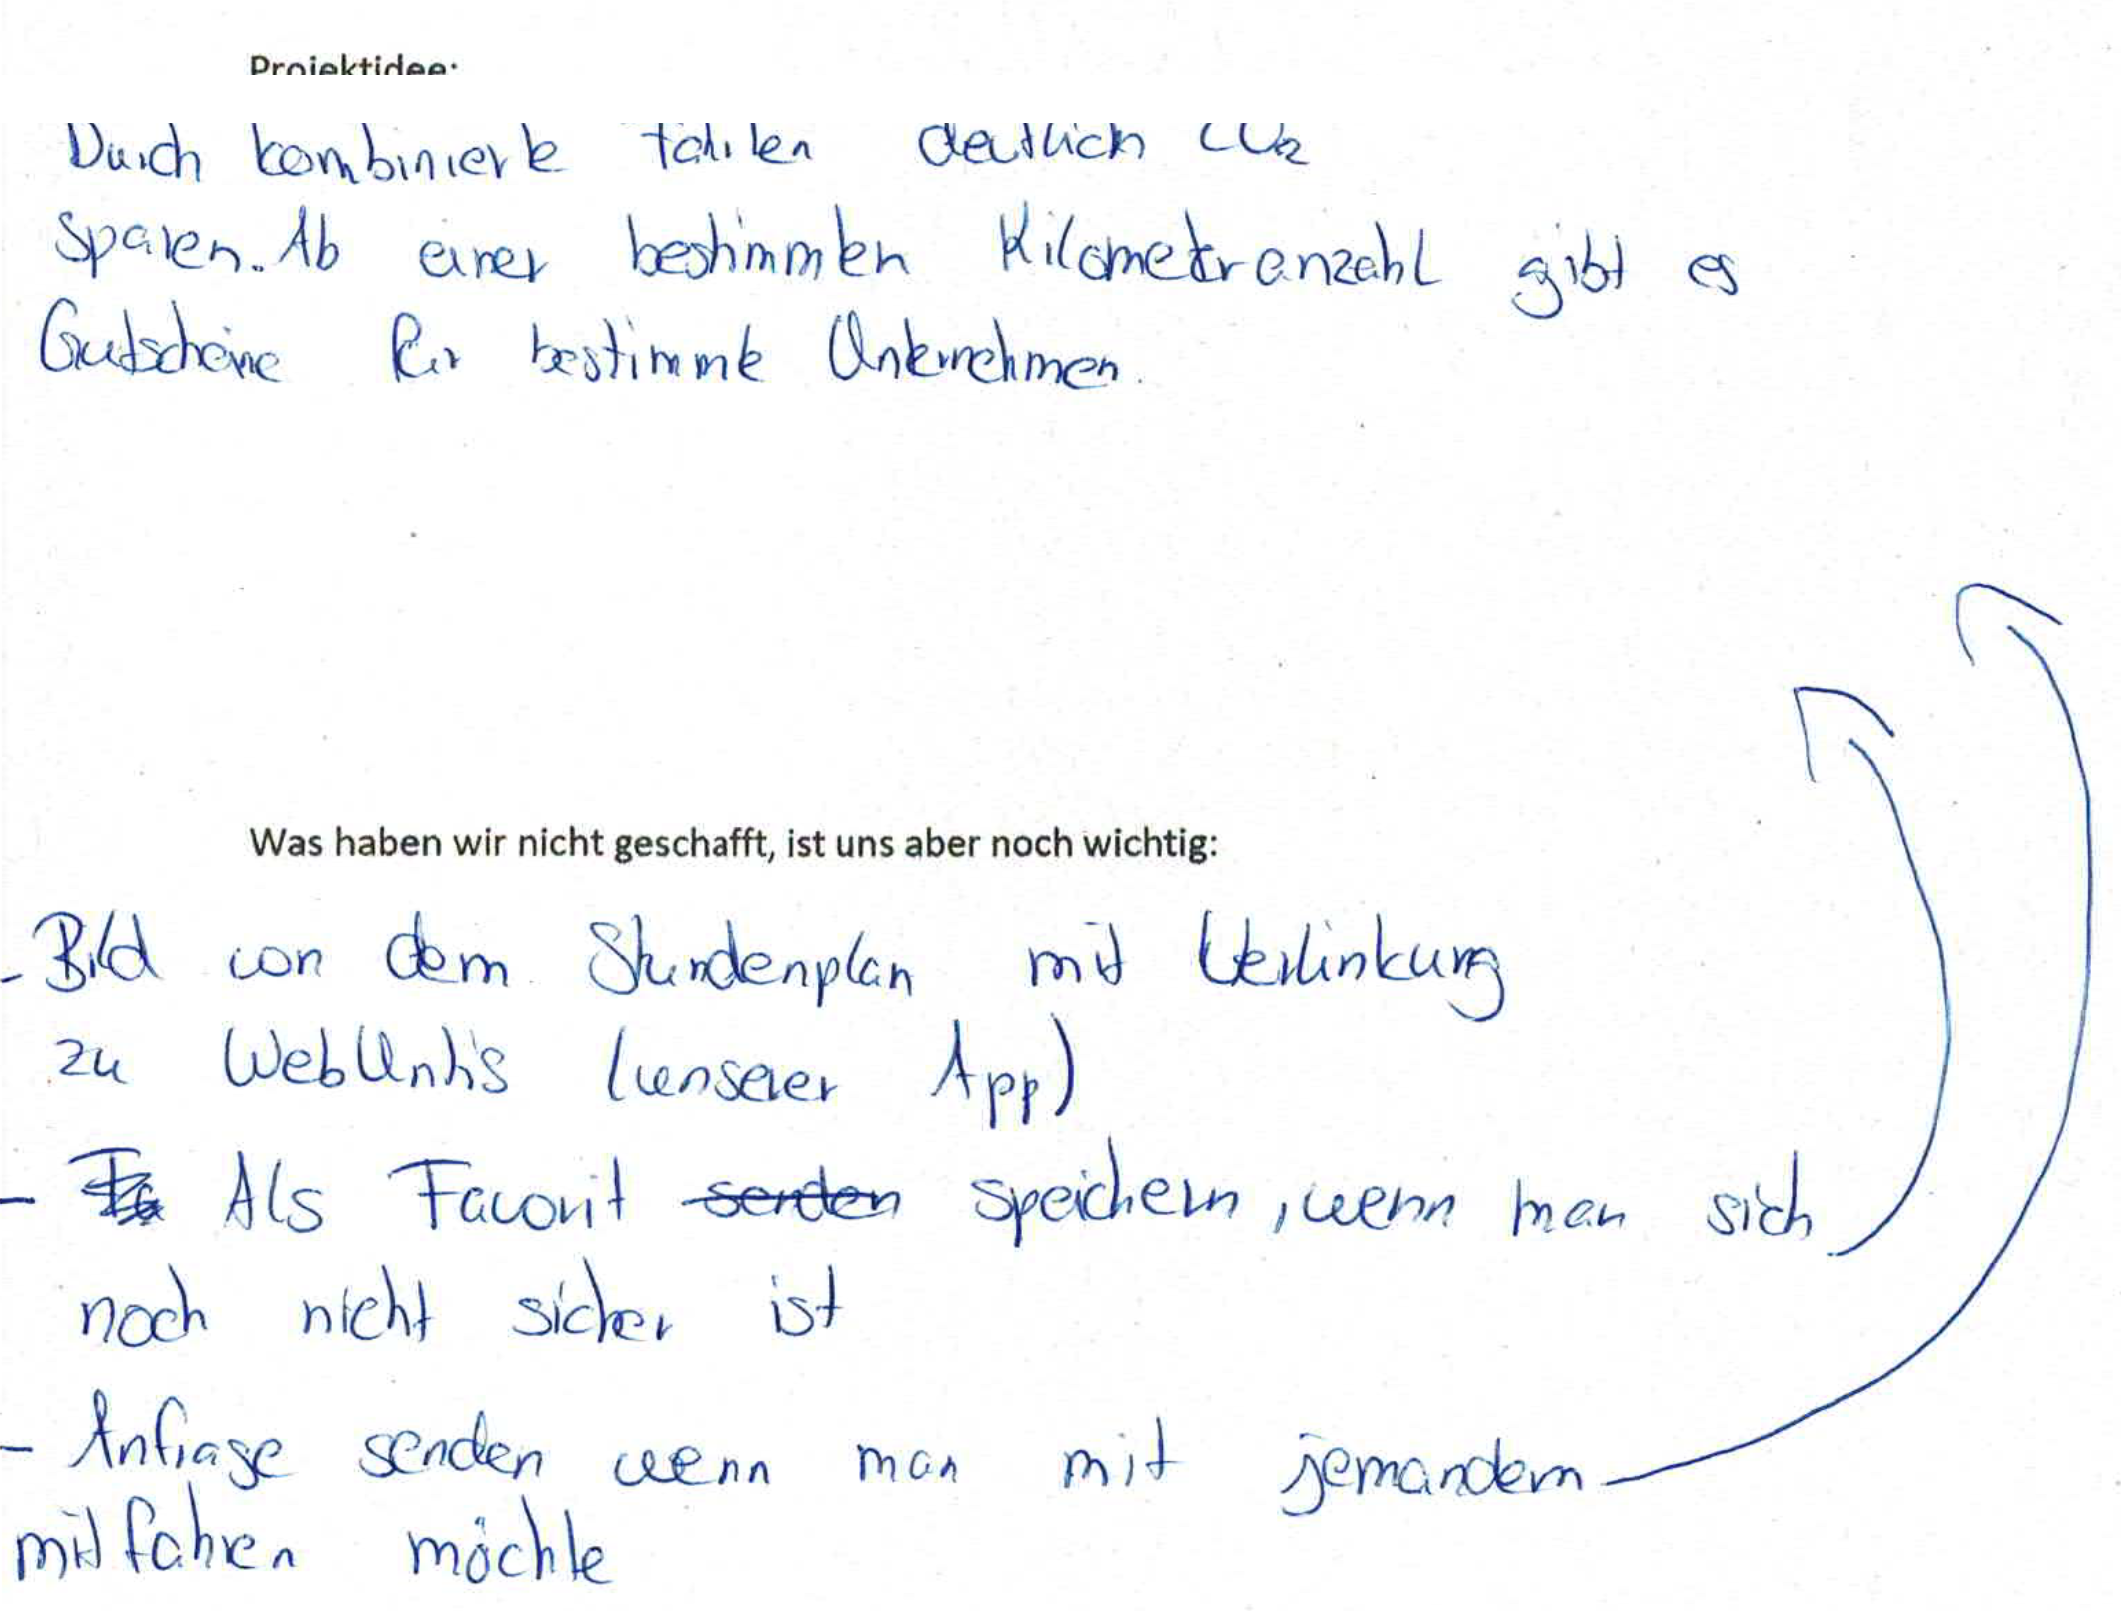 Projektidee:
Durch kombinierte Fahrten deutlich CO2
sparen. Ab einer bestimmten Kilometeranzahl gibt es
Gutscheine für bestimmte Unternehmen.
Was haben wir nicht geschafft, ist uns aber noch wichtig:
- Bild von dem Stundenplan mit Verlinkung
zu WebUntis (unserer App)
- Als Favorit senden speichern, wenn man sich
noch nicht sicher ist
- Anfrage senden wenn man mit jemandem
mitfahren möchte